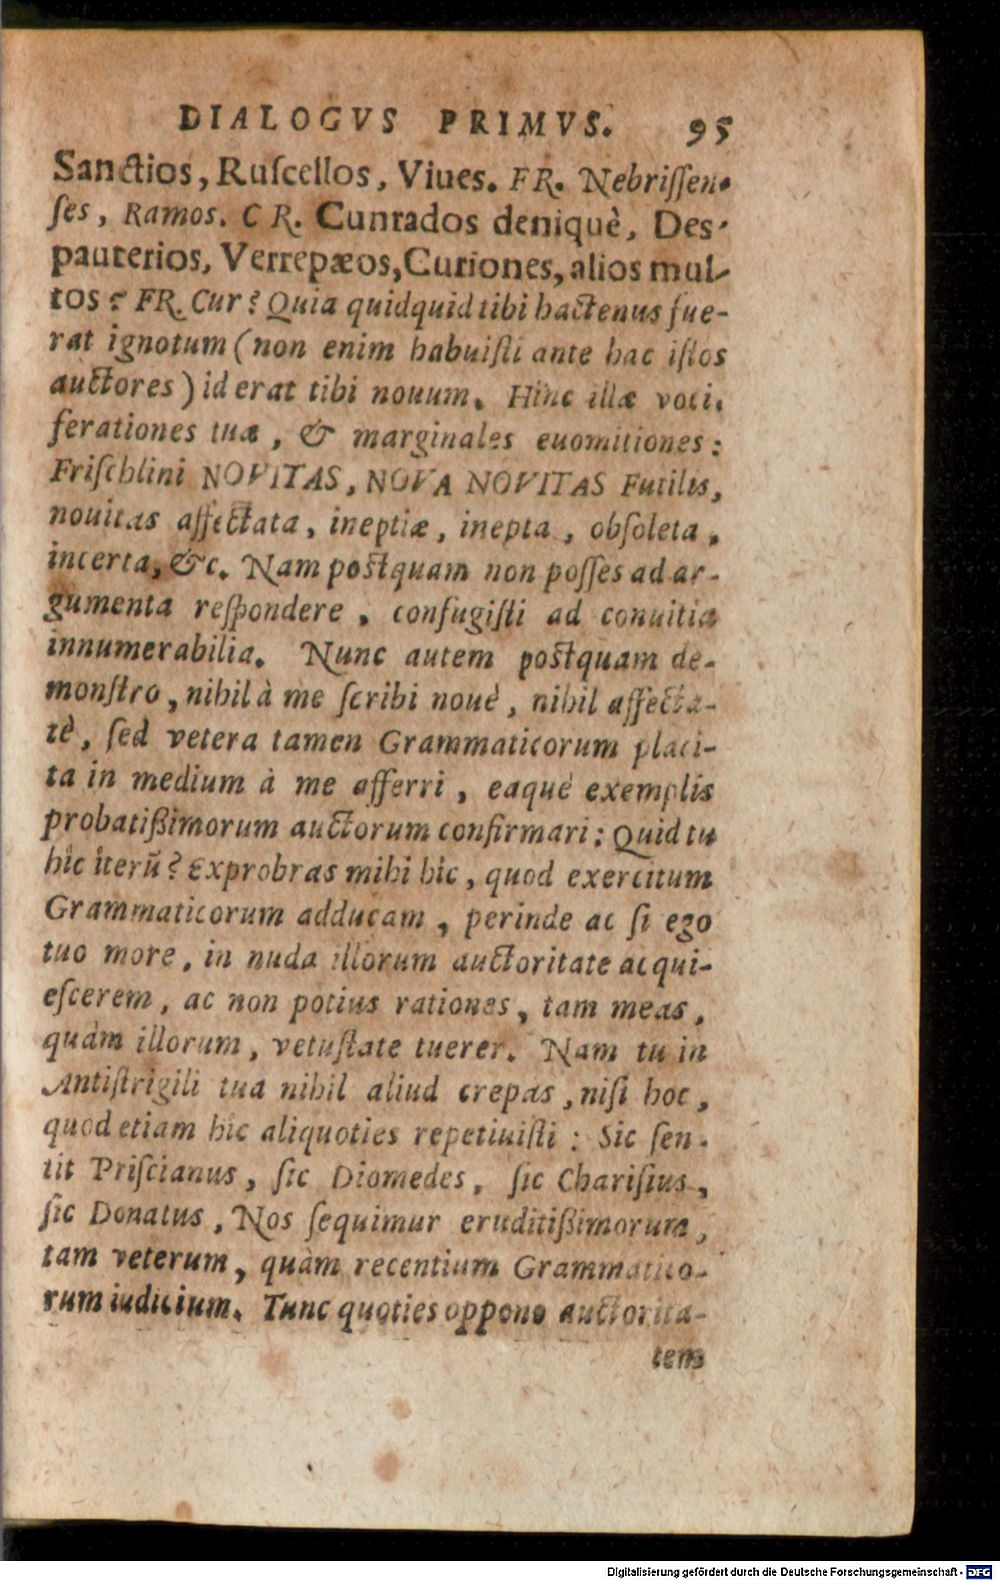 DIALOGVS PRIMVS. 95
Sanctios, Ruſcellos, Viues. FR. Nebriſſen-
ſes, Ramos. CR. Cunrados deniquè, Des-
pauterios, Verrepæos, Curiones, alios mul-
tos? FR. Cur? Quia quidquid tibi hactenus fue-
rat ignotum (non enim habuiſti ante hac iſtos
auctores) id erat tibi nouum. Hinc illæ voci-
ferationes tuæ, & marginales euomitiones:
Friſchlini NOVITAS, NOVA NOVITAS Futilis,
nouitas affectata, ineptiæ, inepta, obſoleta,
incerta, &c. Nam postquam non poſſes ad ar-
gumenta reſpondere, confugiſti ad conuitia
innumerabilia. Nunc autem postquam de-
monſtro, nihil à me ſcribi nouè, nihil affecta-
tè, ſed vetera tamen Grammaticorum placi-
ta in medium à me afferri, eaque exemplis
probatißimorum auctorum confirmari: Quid tu
hîc iterũ? Exprobras mihi hîc, quod exercitum
Grammaticorum adducam, perinde ac ſi ego
tuo more, in nuda illorum auctoritate acqui-
eſcerem, ac non potius rationes, tam meas,
quàm illorum, vetuſtate tuerer. Nam tu in
Antiſtrigili tua nihil aliud crepas, niſi hoc,
quod etiam hîc aliquoties repetiuiſti: Sic ſen-
tit Priſcianus, ſic Diomedes, ſic Chariſius,
ſic Donatus, Nos ſequimur eruditißimorum,
tam veterum, quàm recentium Grammatico-
rum iudicium. Tunc quoties oppono auctorita-
tem
Digitalisierung gefördert durch die Deutsche Forschungsgemeinschaft - DFG